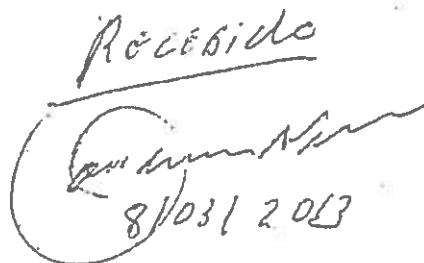 Recebido
8/03/2013